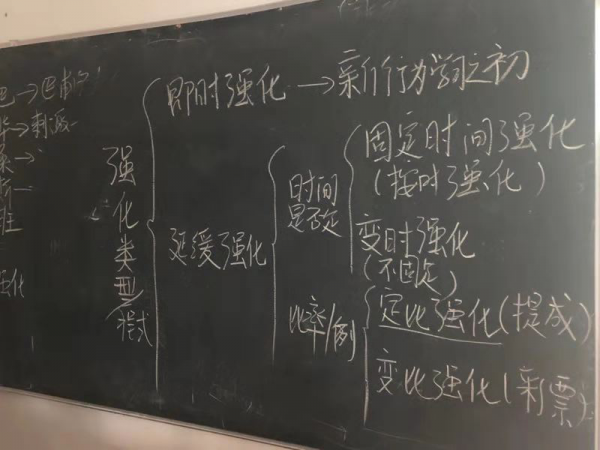 巴→巴甫
华→刺激
强化类型/程式
即时强化→新行为学习之初
延缓强化
时间是否定
固定时间强化
(按时强化)
变时强化
(不固定)
比率/例
定比强化(提成)
变比强化(彩票)
强化